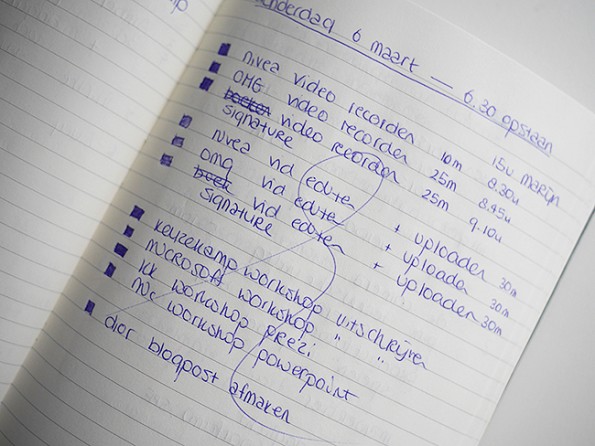 donderdag 6 maart — 6.30 opstaan
nivea video recorden 10m 15u marijn
OMG video recorden 25m 8.30u
video recorden 25m 8.45u
signature 9.10u
nivea vid editen + uploaden 30m
omg vid editen + uploaden 30m
vid editen + uploaden 30m
signature
keuzekamp workshop uitschrijven
microsoft workshop " "
ick workshop prezi
workshop powerpoint
dior blogpost afmaken